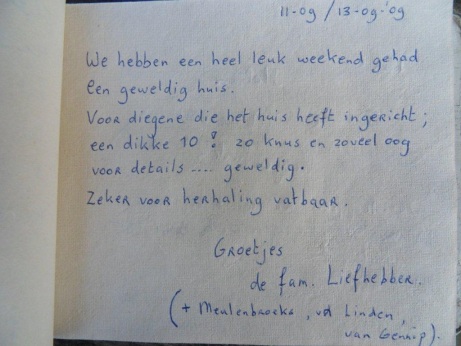 11-09 / 13-09-'09
We hebben een heel leuk weekend gehad
Een geweldig huis.
Voor diegene die het huis heeft ingericht ;
een dikke 10 ! zo knus en zoveel oog
voor details .... geweldig.
Zeker voor herhaling vatbaar.
Groetjes
de fam. Liefhebber.
(+ Meulenbroeks, vd Linden,
van Gennip).